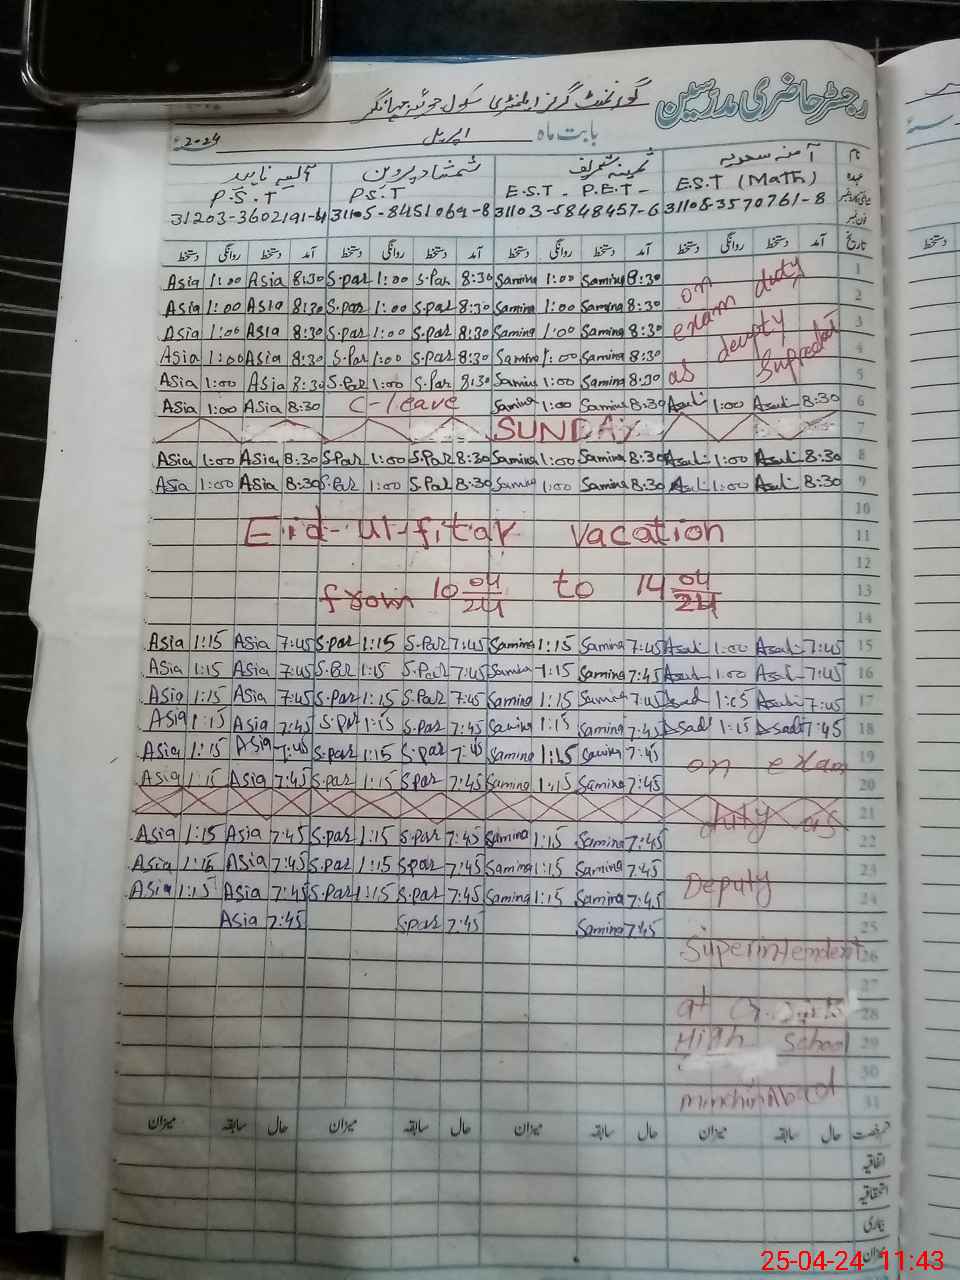 رجسٹر حاضری مدرسین گورنمنٹ گرلز ایلمنٹری سکول
بابت ماہ اپریل 2024ء
نام آمنہ سعدیہ ثمینہ شریف شمشاد پروین آسیہ ناہید
عہدہ E.S.T (Math) E.S.T - P.E.T - P.S.T P.S.T
31203-3602191-4 31105-8451069-8 31103-5848457-6 31105-3570761-8
تاریخ آمد دستخط روانگی دستخط آمد دستخط روانگی دستخط آمد دستخط روانگی دستخط آمد دستخط روانگی دستخط
Asia 1:00 Asia 8:30 S.par 1:00 S.Par 8:30 Samina 1:00 Samina 8:30 on duty 1
Asia 1:00 Asia 8:30 S.par 1:00 S.par 8:30 Samina 1:00 Samina 8:30 exam 2
Asia 1:00 Asia 8:30 S.par 1:00 S.par 8:30 Samina 1:00 Samina 8:30 deupty 3
Asia 1:00 Asia 8:30 S.Par 1:00 S.par 8:30 Samina 1:00 Samina 8:30 4
Asia 1:00 Asia 8:30 S.Par 1:00 S.Par 8:30 Samina 1:00 Samina 8:30 as 5
Asia 1:00 Asia 8:30 C-leave Samina 1:00 Samina 8:30 1:00 8:30 6
SUNDAY 7
Asia 1:00 Asia 8:30 S.Par 1:00 S.Par 8:30 Samina 1:00 Samina 8:30 1:00 8:30 8
Asia 1:00 Asia 8:30 S.Par 1:00 S.Par 8:30 Samina 1:00 Samina 8:30 1:00 8:30 9
10
Eid-ul-fitar vacation 11
12
from 10 04/24 to 14 04/24 13
14
Asia 1:15 Asia 7:45 S.par 1:15 S.Par 7:45 Samina 1:15 Samina 7:45 1:00 7:45 15
Asia 1:15 Asia 7:45 S.Par 1:15 S.Par 7:45 Samina 1:15 Samina 7:45 1:00 7:45 16
Asia 1:15 Asia 7:45 S.par 1:15 S.Par 7:45 Samina 1:15 Samina 7:45 1:15 7:45 17
Asia 1:15 Asia 7:45 S.par 1:15 S.par 7:45 Samina 1:15 Samina 7:45 1:15 7:45 18
Asia 1:15 Asia 7:45 S.par 1:15 S.par 7:45 Samina 1:15 Samina 7:45 on exam 19
Asia 1:15 Asia 7:45 S.par 1:15 S.par 7:45 Samina 1:15 Samina 7:45 20
duty as 21
Asia 1:15 Asia 7:45 S.par 1:15 S.par 7:45 Samina 1:15 Samina 7:45 22
Asia 1:15 Asia 7:45 S.par 1:15 S.par 7:45 Samina 1:15 Samina 7:45 23
Asia 1:15 Asia 7:45 S.par 1:15 S.par 7:45 Samina 1:15 Samina 7:45 Deputy 24
Asia 7:45 S.par 7:45 Samina 7:45 25
Superintendent 26
27
at G. Girls 28
High School 29
30
MinchinAbad 31
رخصت حال سابقہ میزان حال سابقہ میزان حال سابقہ میزان حال سابقہ میزان
اتفاقیہ
استحقاقیہ
بیماری
میزان
25-04-24 11:43